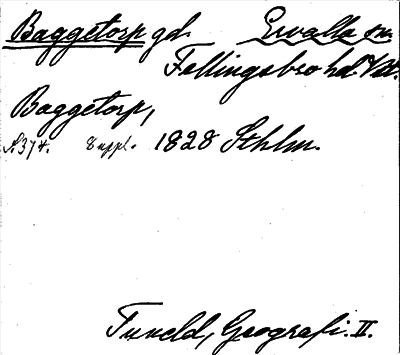 Baggetorp gd. Ervalla sn.
Fellingsbro hd. Vstl.
Baggetorp,
S. 374. 8 uppl. 1828 Sthlm.
Tuneld, Geografi. II.